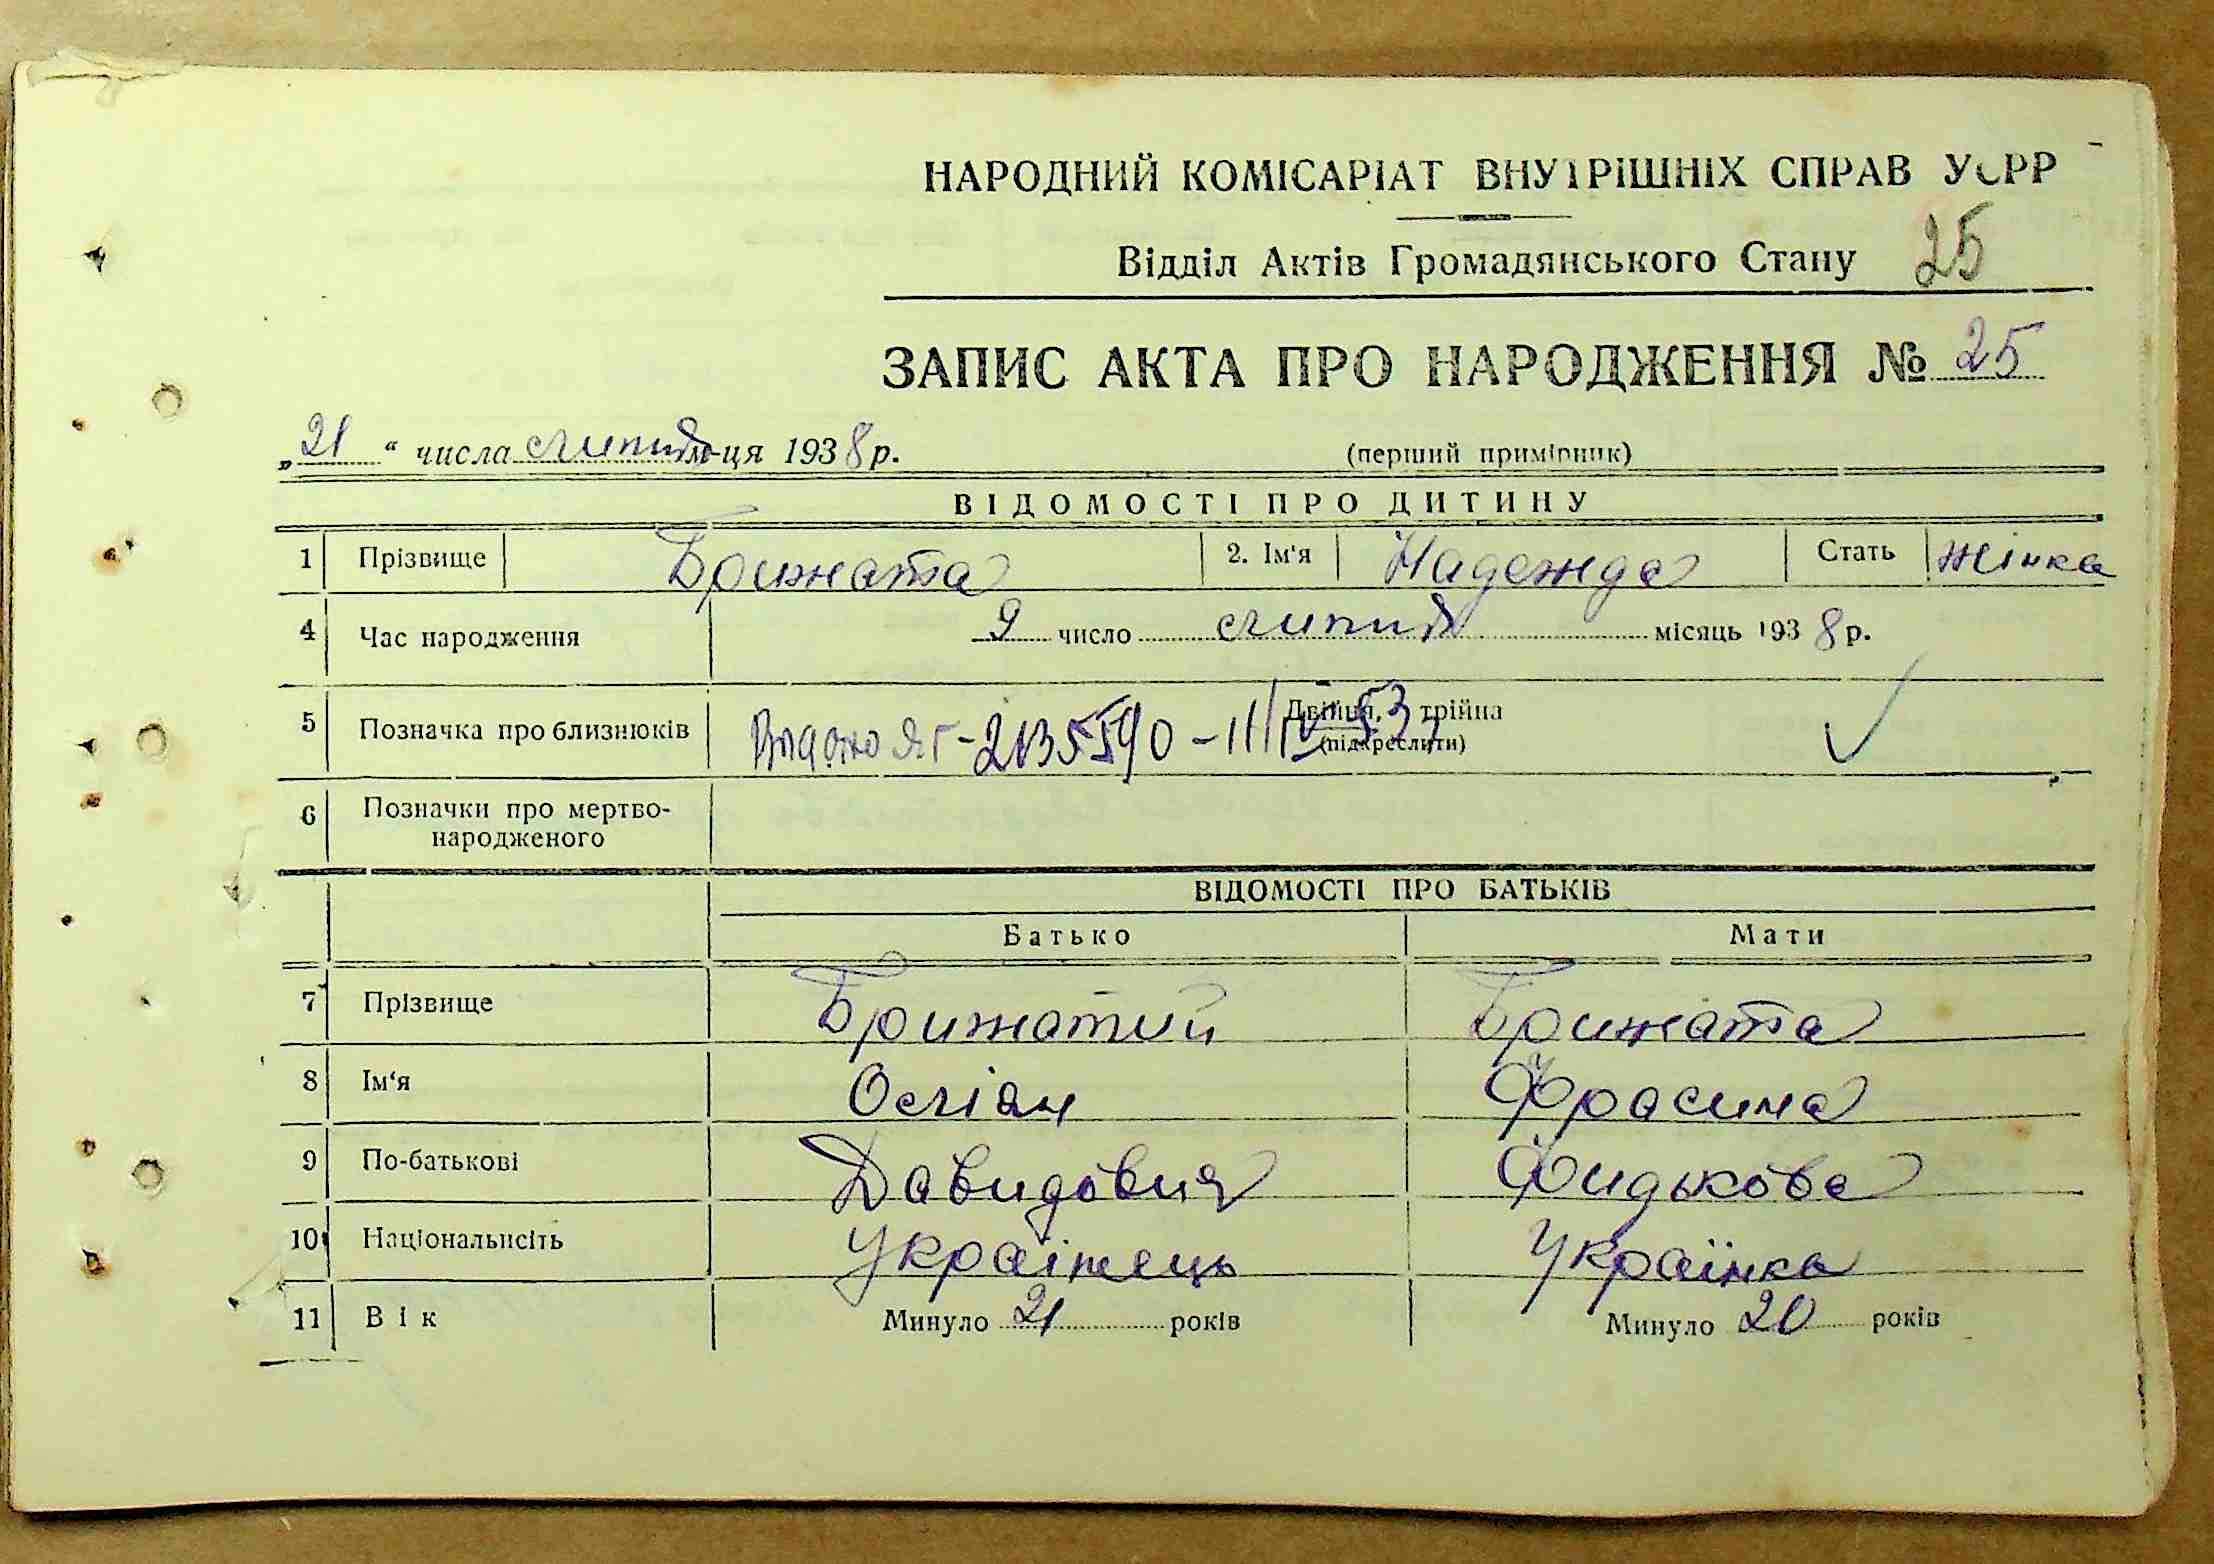 НАРОДНИЙ КОМІСАРІАТ ВНУТРІШНІХ СПРАВ УСРР
Відділ Актів Громадянського Стану 25
ЗАПИС АКТА ПРО НАРОДЖЕННЯ № 25
„21“ числа м-ця 1938 р. (перший примірник)
ВІДОМОСТІ ПРО ДИТИНУ
1 Прізвище Брижата 2. Ім'я Надежда Стать жінка
4 Час народження 9 число місяць 1938 р.
5 Позначка про близнюків Двійня, трійна
Видано ЯГ-2135590 -
(підкреслити)
6 Позначки про мертво-
народженого
ВІДОМОСТІ ПРО БАТЬКІВ
Батько Мати
7 Прізвище Брижатий Брижата
8 Ім'я Фрасина
9 По-батькові Давидович Фидькова
10 Національність Українець Українка
11 Вік Минуло 21 років Минуло 20 років